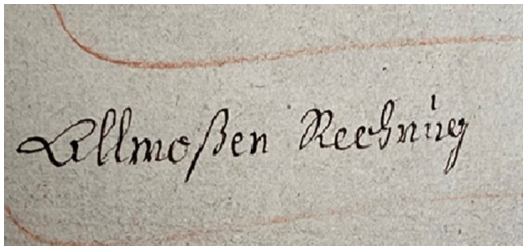 Allmoßen Rechnung